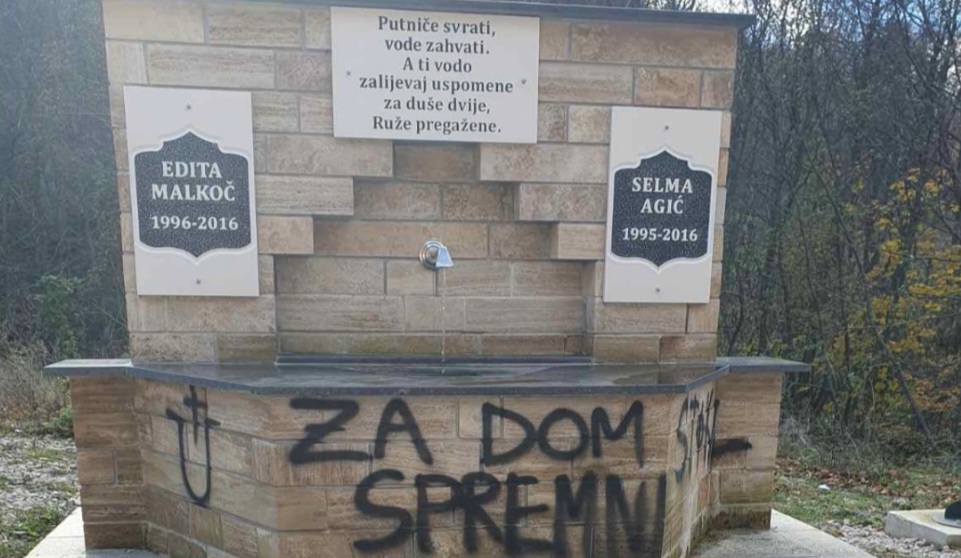 Putniče svrati,
vode zahvati.
A ti vodo
zalijevaj uspomene
za duše dvije,
Ruže pregažene.
EDITA
MALKOČ
1996-2016
SELMA
AGIĆ
1995-2016
U
ZA DOM
SPREMNI